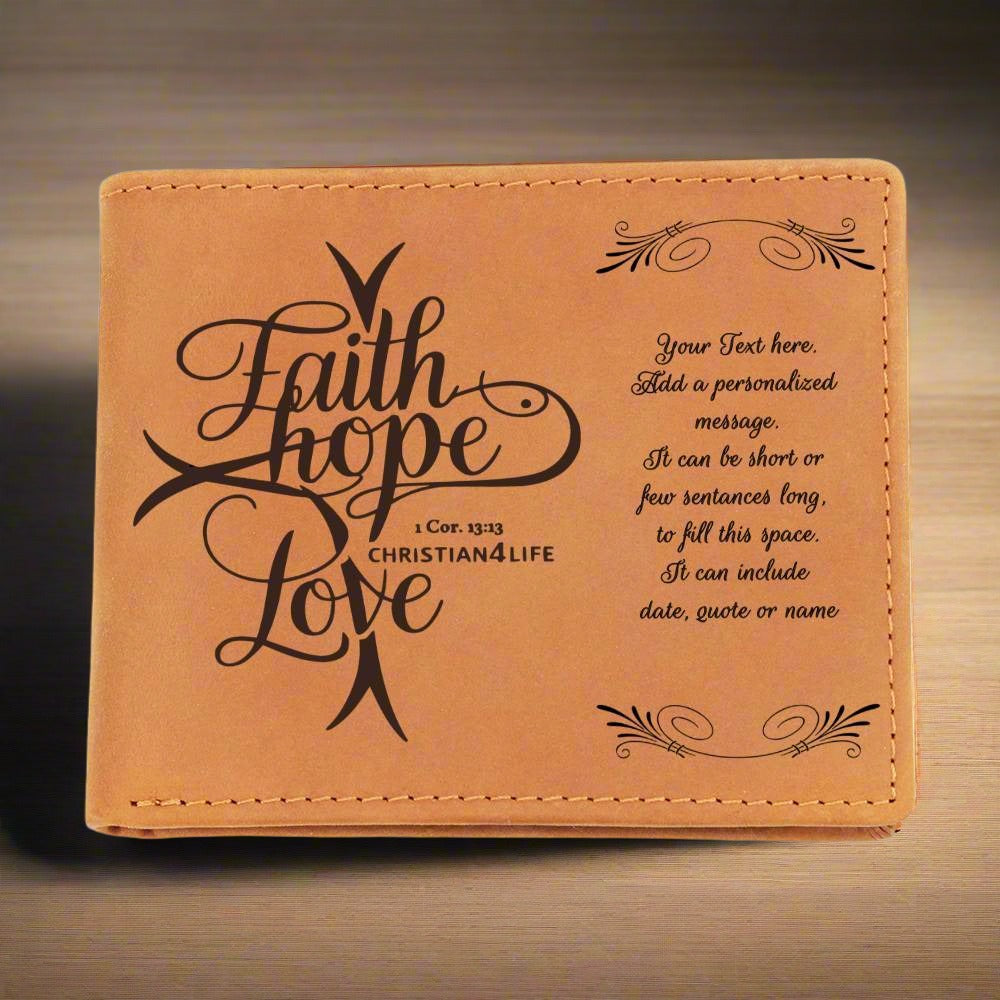 Faith
hope
Love
1 Cor. 13:13
CHRISTIAN4LIFE
Your Text here.
Add a personalized
message.
It can be short or
few sentances long,
to fill this space.
It can include
date, quote or name